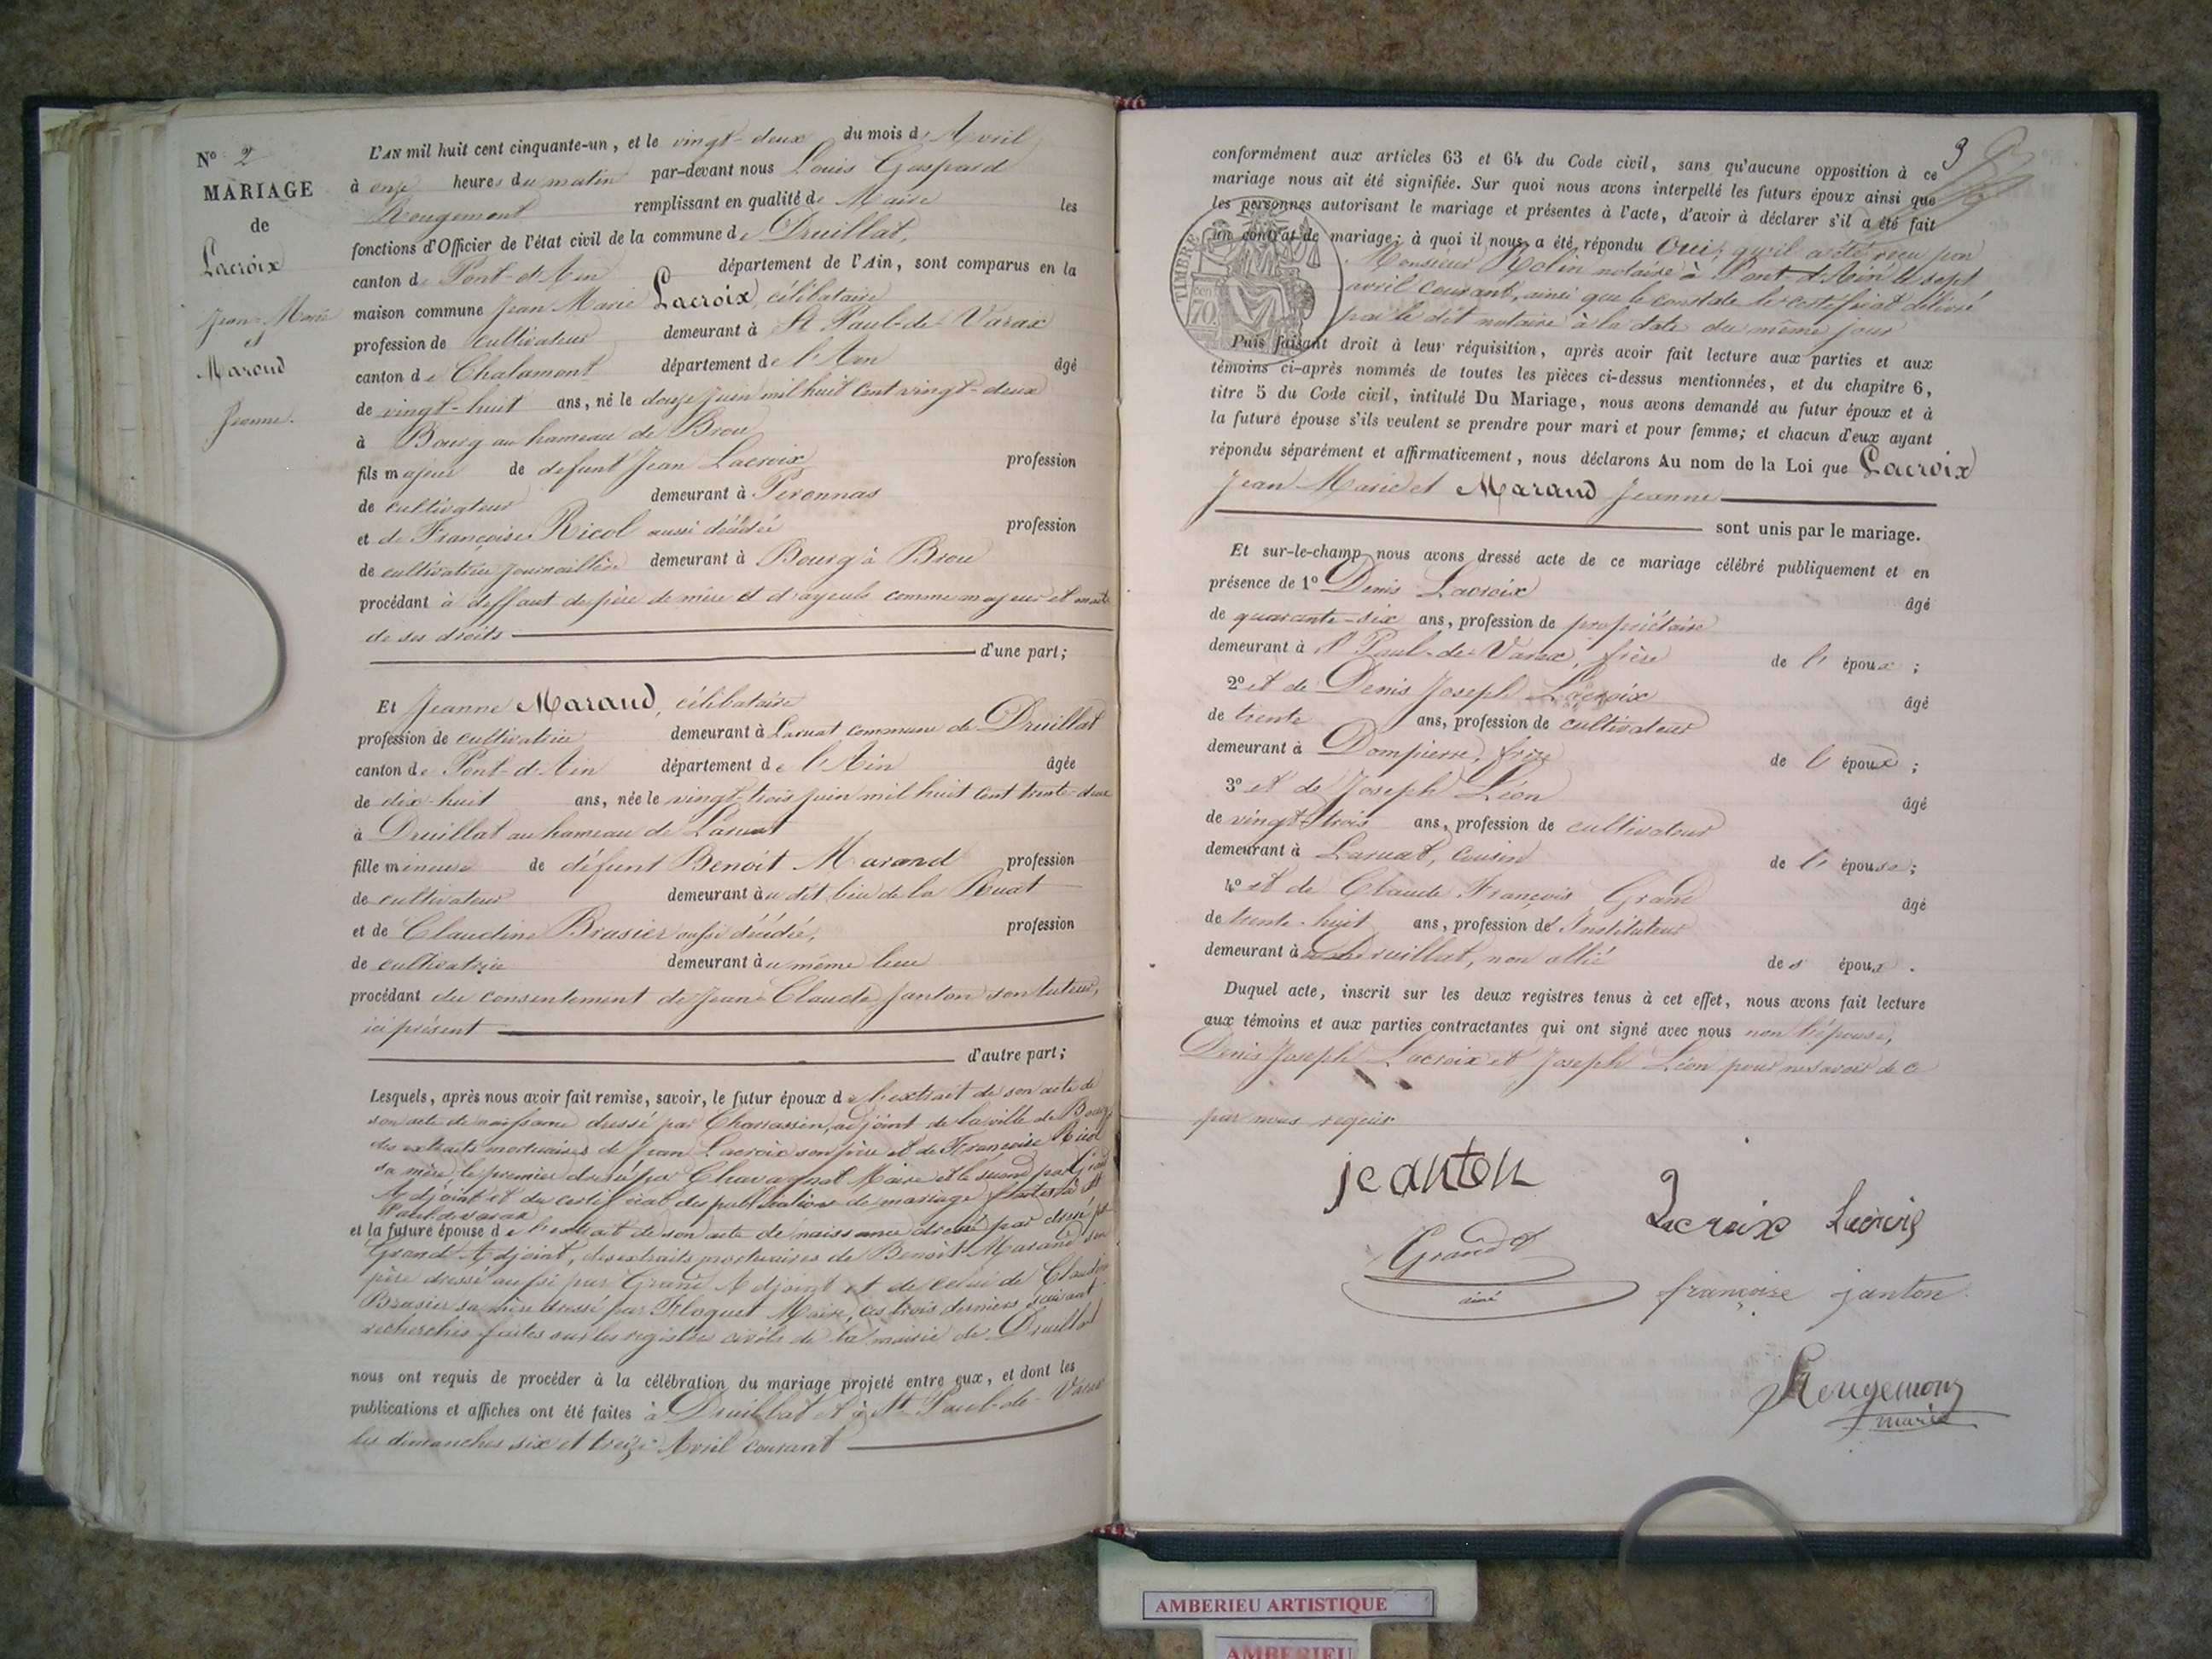 N° 2
MARIAGE
de
Lacroix
Jean-Marie
et
Maraud
Jeanne.
L'AN mil huit cent cinquante-un, et le vingt-deux du mois d' Avril
à onze heures du matin par-devant nous Louis Gaspard
Rougemont remplissant en qualité de Maire les
fonctions d'Officier de l'état civil de la commune de Druillat,
canton de Pont-d'Ain département de l'Ain, sont comparus en la
maison commune Jean Marie Lacroix, célibataire
profession de cultivateur demeurant à St Paul-de-Varax
canton de Chalamont département de l'Ain âgé
de vingt-huit ans, né le douze juin mil huit cent vingt-deux
à Bourg au hameau de Brou
fils majeur de defunt Jean Lacroix profession
de cultivateur demeurant à Peronnas
et de Françoise Ricol aussi décédée profession
de cultivatrice demeurant à Bourg à Brou
procédant à deffaut de père de mère et d'ayeuls comme majeur et maitre
de ses droits
d'une part;
Et Jeanne Maraud, célibataire
profession de cultivatrice demeurant à Laruat commune de Druillat
canton de Pont-d'Ain département de l'Ain âgée
de dix-huit ans, née le vingt-trois juin mil huit cent trente-deux
à Druillat au hameau de Laruat
fille mineure de défunt Benoit Marand profession
de cultivateur demeurant au dit lieu de la Ruat
et de Claudine Brasier aussi décédée, profession
de cultivatrice demeurant au même lieu
procédant du consentement de Jean-Claude Janton son tuteur,
ici présent
d'autre part;
Lesquels, après nous avoir fait remise, savoir, le futur époux de l'extrait de son acte de
son acte de naissance dressé par Charassin, adjoint de la ville de Bourg
des extraits mortuaires de Jean Lacroix son père et de Françoise Ricol
sa mère, le premier dressé par Chavagnat Maire et le second par
Adjoint et du certificat des publications de mariage faites à St
Paul de varax
et la future épouse de l'extrait de son acte de naissance dressé par
Grand Adjoint, des extraits mortuaires de Benoit Marand son
père dressé aussi par Grand Adjoint et de celui de Claudine
Brasier sa mère dressé par Floquet Maire, ces trois derniers suivant
recherches faites sur les registres civils de la mairie de Druillat
nous ont requis de procéder à la célébration du mariage projeté entre eux, et dont les
publications et affiches ont été faites à Druillat et à St Paul-de-Varax
les dimanches six et treize Avril courant
3
conformément aux articles 63 et 64 du Code civil, sans qu'aucune opposition à ce
mariage nous ait été signifiée. Sur quoi nous avons interpellé les futurs époux ainsi que
les personnes autorisant le mariage et présentes à l'acte, d'avoir à déclarer s'il a été fait
un contrat de mariage; à quoi il nous a été répondu Oui; qu'il a été reçu par
Monsieur Rolin notaire à Pont-d'Ain le sept
avril courant, ainsi que le constate le certificat délivré
par le dit notaire à la date du même jour
TIMBRE
70
Puis faisant droit à leur réquisition, après avoir fait lecture aux parties et aux
témoins ci-après nommés de toutes les pièces ci-dessus mentionnées, et du chapitre 6,
titre 5 du Code civil, intitulé Du Mariage, nous avons demandé au futur époux et à
la future épouse s'ils veulent se prendre pour mari et pour femme; et chacun d'eux ayant
répondu séparément et affirmativement, nous déclarons Au nom de la Loi que Lacroix
Jean Marie et Maraud Jeanne
sont unis par le mariage.
Et sur-le-champ nous avons dressé acte de ce mariage célébré publiquement et en
présence de 1° Denis Lacroix âgé
de quarante-six ans, profession de propriétaire
demeurant à St Paul-de-Varax, frère de l'époux;
2° et de Denis Joseph Lacroix âgé
de trente ans, profession de cultivateur
demeurant à Dompierre, frère de l'époux;
3° et de Joseph Léon âgé
de vingt-trois ans, profession de cultivateur
demeurant à Laruat, cousin de l'épouse;
4° et de Claude François Grand âgé
de trente-huit ans, profession d'Instituteur
demeurant à Druillat, non allié des époux.
Duquel acte, inscrit sur les deux registres tenus à cet effet, nous avons fait lecture
aux témoins et aux parties contractantes qui ont signé avec nous non l'épouse,
Denis Joseph Lacroix et Joseph Léon pour ne savoir de ce
par nous requis
jeanton
Lacroix Lacroix
Grand
ainé
françoise janton
Rougemont
maire
AMBERIEU ARTISTIQUE
AMBERIEU